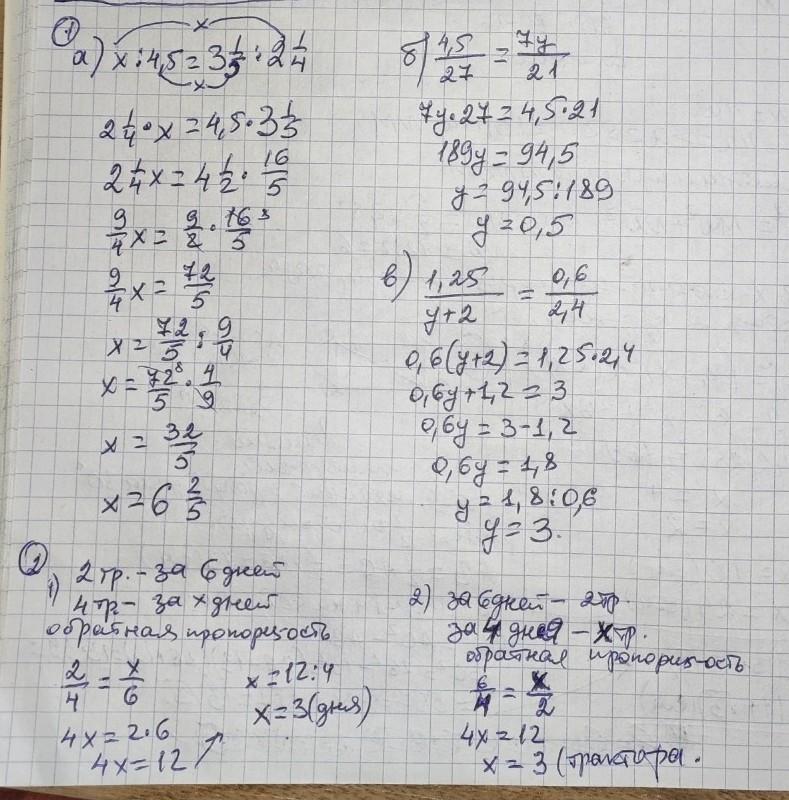 ①
x
а) x : 4,5 = 3 1/5 : 2 1/4
x
2 1/4 · x = 4,5 · 3 1/5
2 1/4 x = 4 1/2 · 16/5
9/4 x = 9/2 · 16 8/5
9/4 x = 72/5
x = 72/5 : 9/4
x = 72 8/5 · 4/9
x = 32/5
x = 6 2/5
б) 4,5/27 = 7y/21
7y · 27 = 4,5 · 21
189y = 94,5
y = 94,5 : 189
y = 0,5
в) 1,25/y+2 = 0,6/2,4
0,6(y+2) = 1,25 · 2,4
0,6y + 1,2 = 3
0,6y = 3 - 1,2
0,6y = 1,8
y = 1,8 : 0,6
y = 3.
②
1) 2 тр. - за 6 дней
4 тр. - за x дней
обратная пропорц-ость
2/4 = x/6
4x = 2·6
4x = 12
x = 12 : 4
x = 3 (дня)
2) за 6 дней - 2 тр
за 4 дня - x тр.
обратная пропорц-ость
6/4 = x/2
4x = 12
x = 3 (трактора.